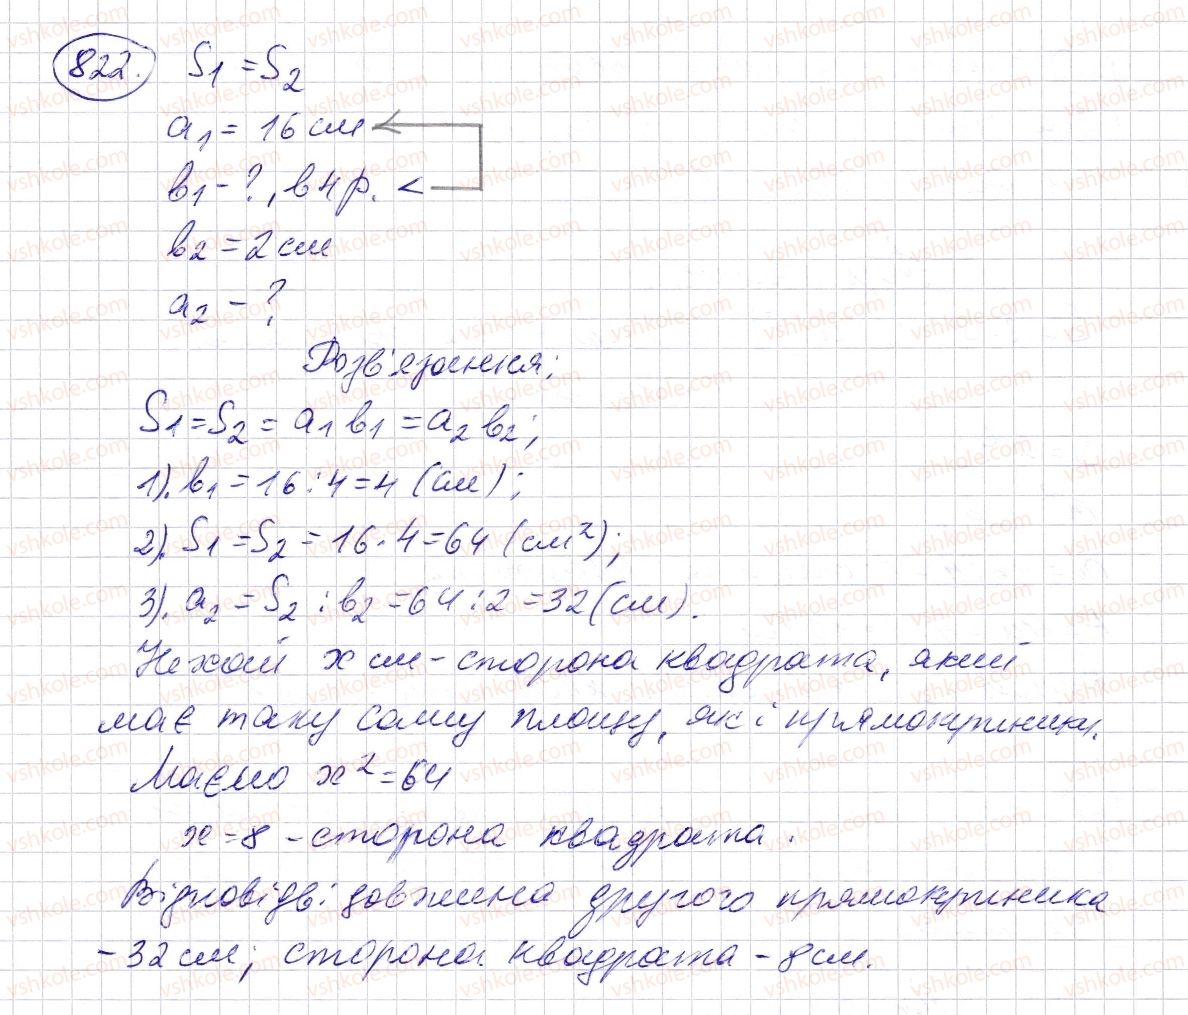 822. S₁ = S₂
a₁ = 16 см
в₁ - ?, в 4 р. <
в₂ = 2 см
a₂ - ?
Розв'язання:
S₁ = S₂ = a₁ в₁ = a₂ в₂;
1). в₁ = 16 : 4 = 4 (см);
2). S₁ = S₂ = 16 · 4 = 64 (см²);
3). a₂ = S₂ : в₂ = 64 : 2 = 32 (см).
Нехай х см - сторона квадрата, який
має таку саму площу, як і прямокутники.
Маємо х² = 64
х = 8 - сторона квадрата.
Відповідь: довжина другого прямокутника
- 32 см; сторона квадрата - 8 см.